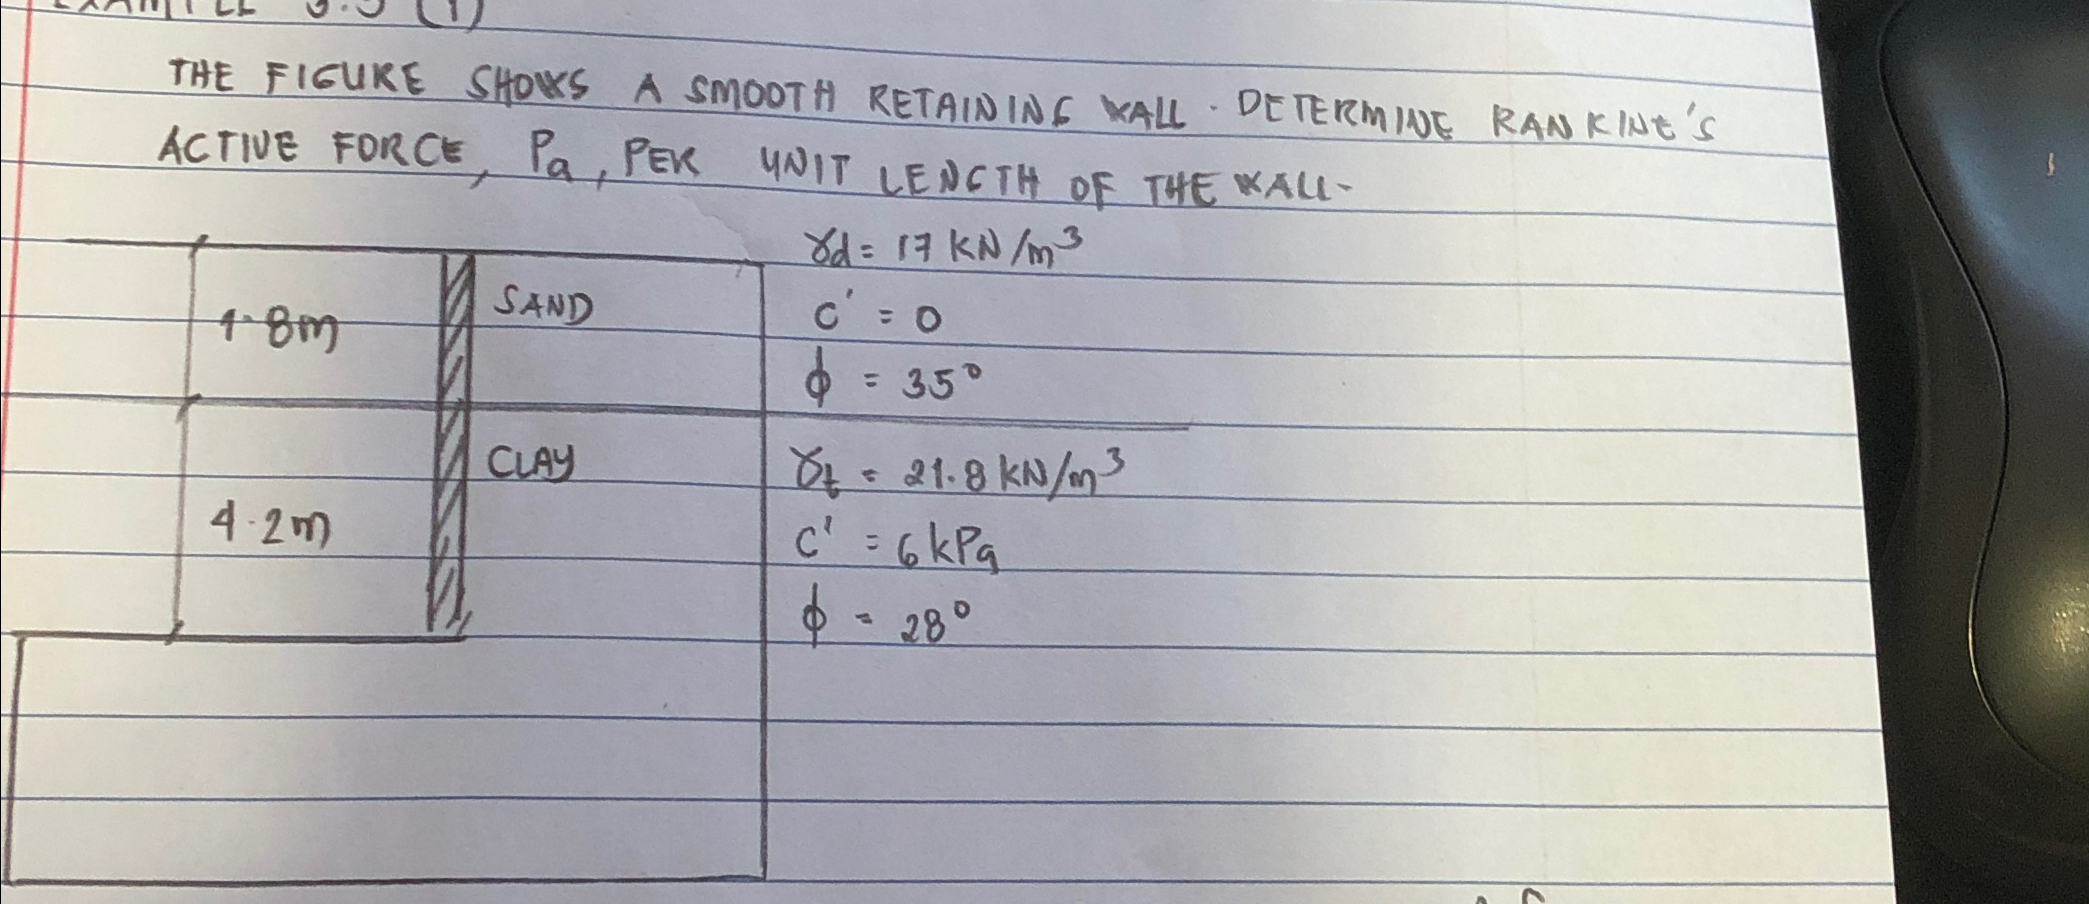 EXAMPLE 3.3 (1)
THE FIGURE SHOWS A SMOOTH RETAINING WALL. DETERMINE RANKINE'S
ACTIVE FORCE, Pa, PER UNIT LENGTH OF THE WALL-
γd = 17 KN/m³
1.8m SAND C' = 0
ϕ = 35°
CLAY γt = 21.8 KN/m³
4.2m C' = 6 kPa
ϕ = 28°